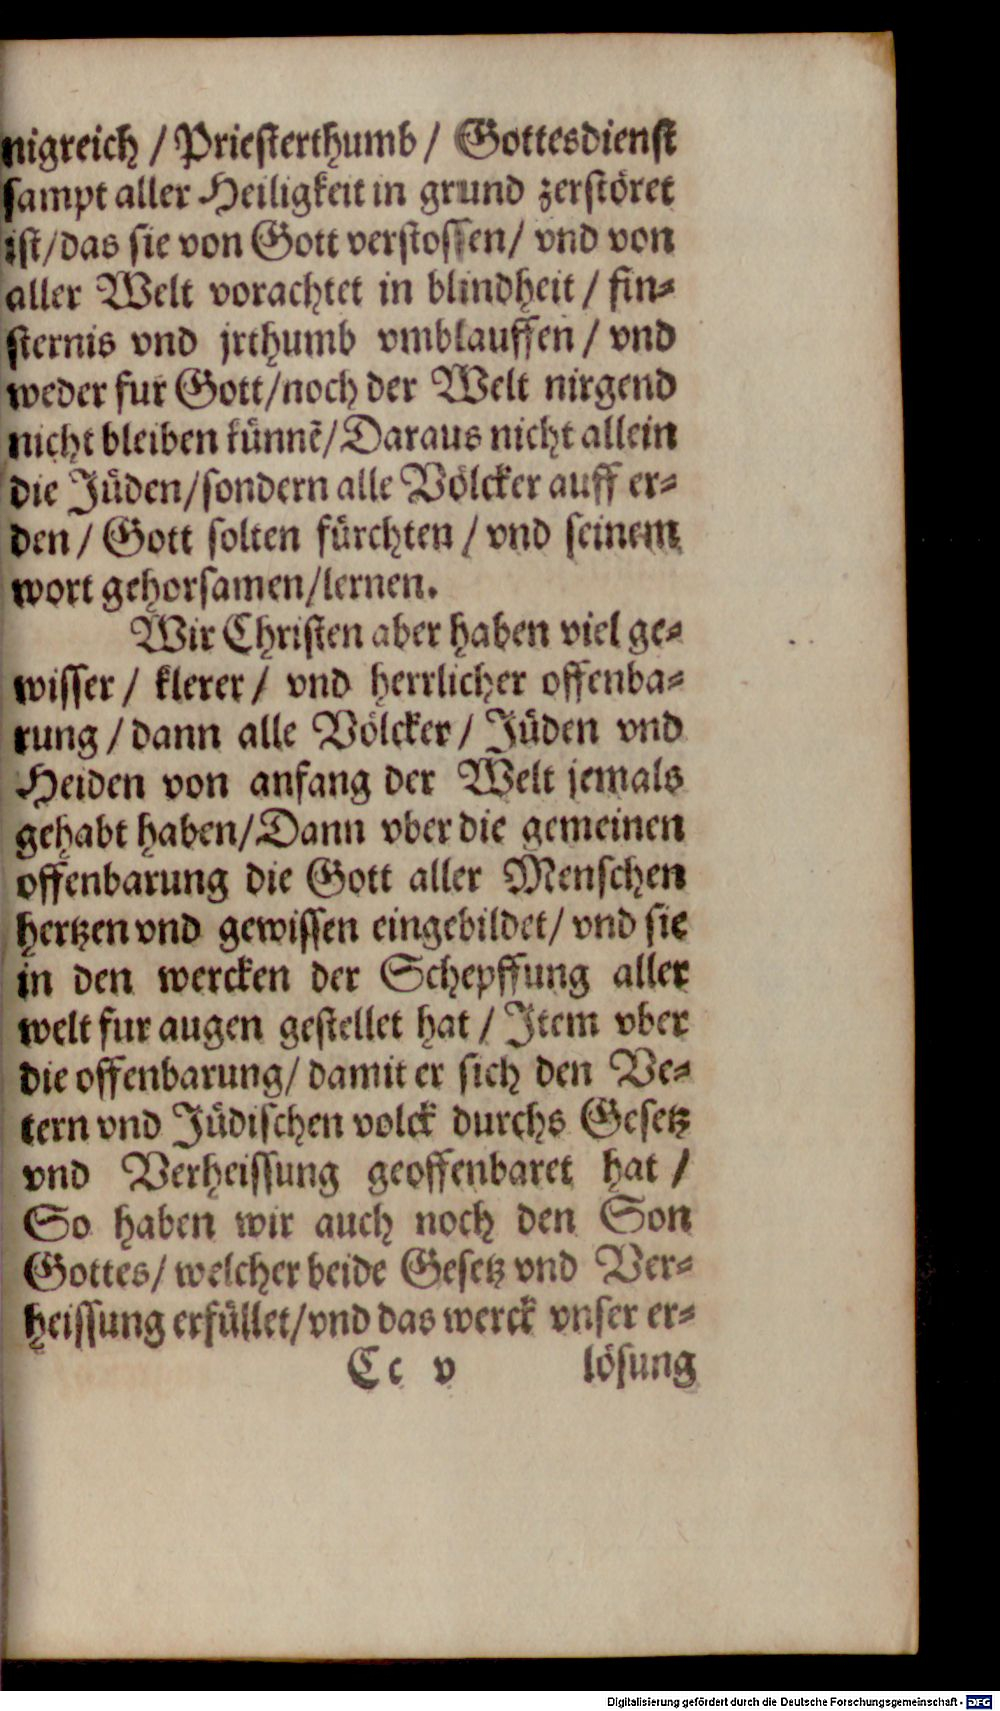 nigreich / Priesterthumb / Gottesdienst
sampt aller Heiligkeit in grund zerstöret
ist/das sie von Gott verstossen/ vnd von
aller Welt vorachtet in blindheit / fin-
sternis vnd jrthumb vmblauffen / vnd
weder fur Gott/noch der Welt nirgend
nicht bleiben künnē/Daraus nicht allein
die Jüden/sondern alle Völcker auff er-
den / Gott solten fürchten / vnd seinem
wort gehorsamen/lernen.
Wir Christen aber haben viel ge-
wisser / klerer / vnd herrlicher offenba-
rung / dann alle Völcker / Jüden vnd
Heiden von anfang der Welt jemals
gehabt haben/Dann vber die gemeinen
offenbarung die Gott aller Menschen
hertzen vnd gewissen eingebildet/ vnd sie
in den wercken der Schepffung aller
welt fur augen gestellet hat / Item vber
die offenbarung/ damit er sich den Ve-
tern vnd Jüdischen volck durchs Gesetz
vnd Verheissung geoffenbaret hat /
So haben wir auch noch den Son
Gottes/ welcher beide Gesetz vnd Ver-
heissung erfüllet/vnd das werck vnser er-
Cc v lösung
Digitalisierung gefördert durch die Deutsche Forschungsgemeinschaft - DFG